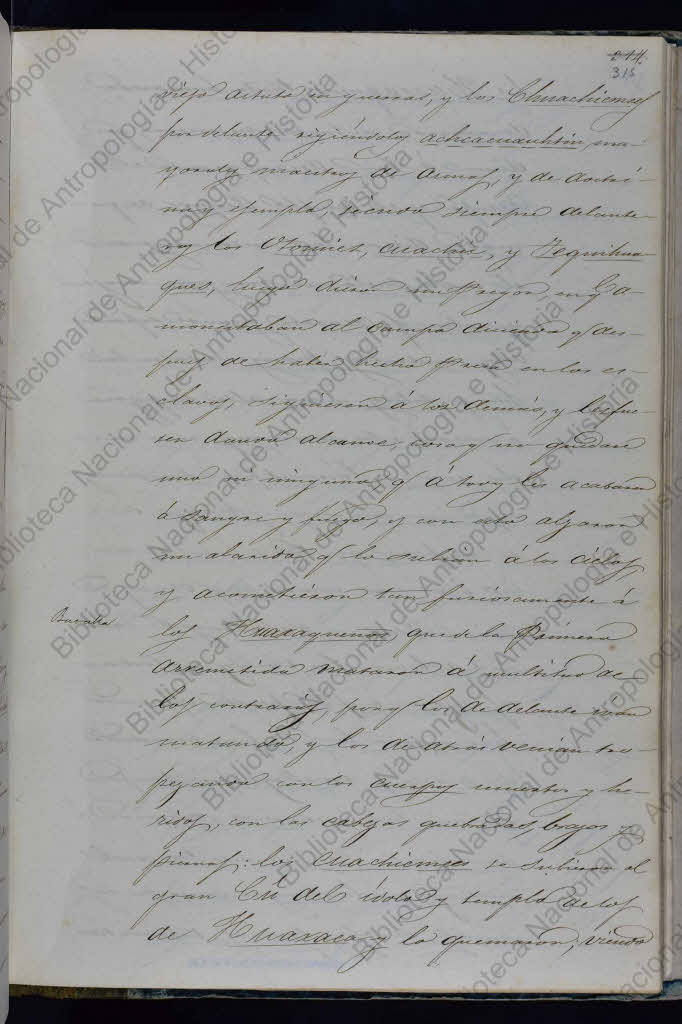 314.
315
viejo astuto en guerras, y los Chuachicmees
por delante rigiéndolos achcacuauhtin, ma-
yorales, maestros de armas, y de doctri-
na y ejemplo, siendo siempre delante-
ros los Otomies, cuachic, y Tequihua-
ques, luego dieron un Pregon, en q a-
monestaban al campo diciendo q des-
pues de haber hecho Presa en los es-
clavos, siguiesen á los demás, y les fue-
sen dando alcance, cosa q no quedase
uno ni ninguno, q á todos los acabasen
á sangre y fuego, y con esto alzaron
un alarido q lo subian á los cielos,
y acometieron tan furiosamente á
Batalla
los Huaxaqueños, que de la Primera
arremetida mataron á multitud de
los contrarios, porq los de delante iban
matando, y los de atrás venian tro-
pezando con los cuerpos muertos y he-
ridos, con las cabezas quebradas, brazos y
piernas: los Cuachicmees se subieron al
gran Cú del idolo y templo de los
de Huaxaca y lo quemaron, viendo
Biblioteca Nacional de Antropología e Historia